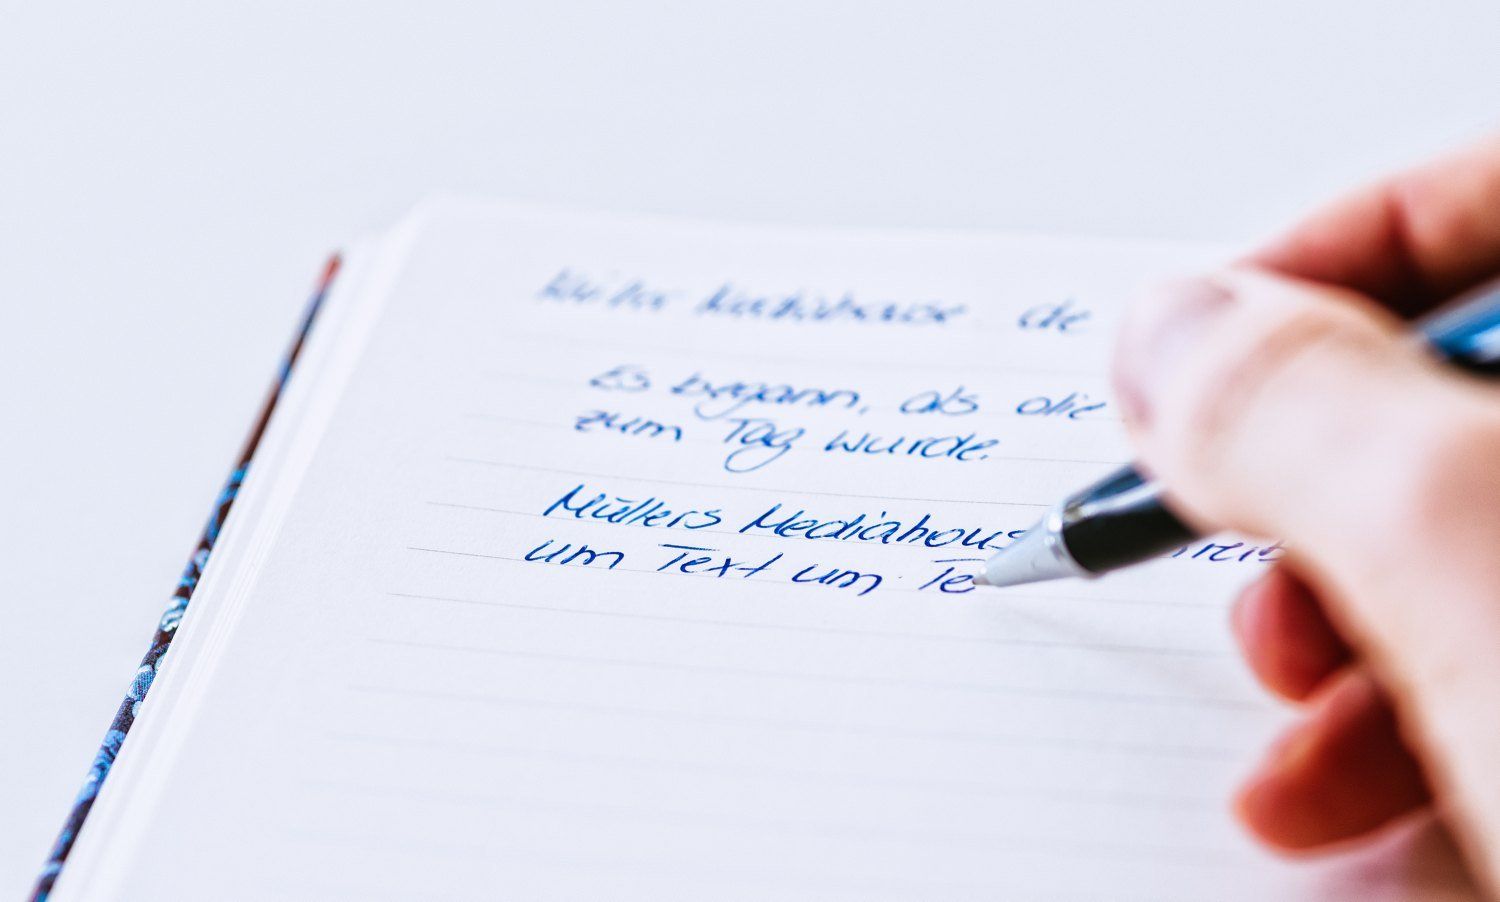 Mediahouse de
Es begann, als die
zum Tag wurde.
Müllers Mediahous
um Text um Te